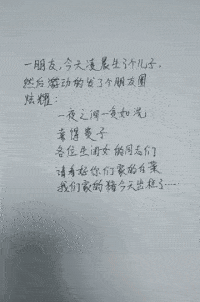 一朋友，今天凌晨生了个儿子，
然后激动的发了个朋友圈
炫耀：
一夜之间一夜如泥
喜得贵子
各位生闺女的同志们
请看好你们家的白菜
我们家的猪今天出栏了……